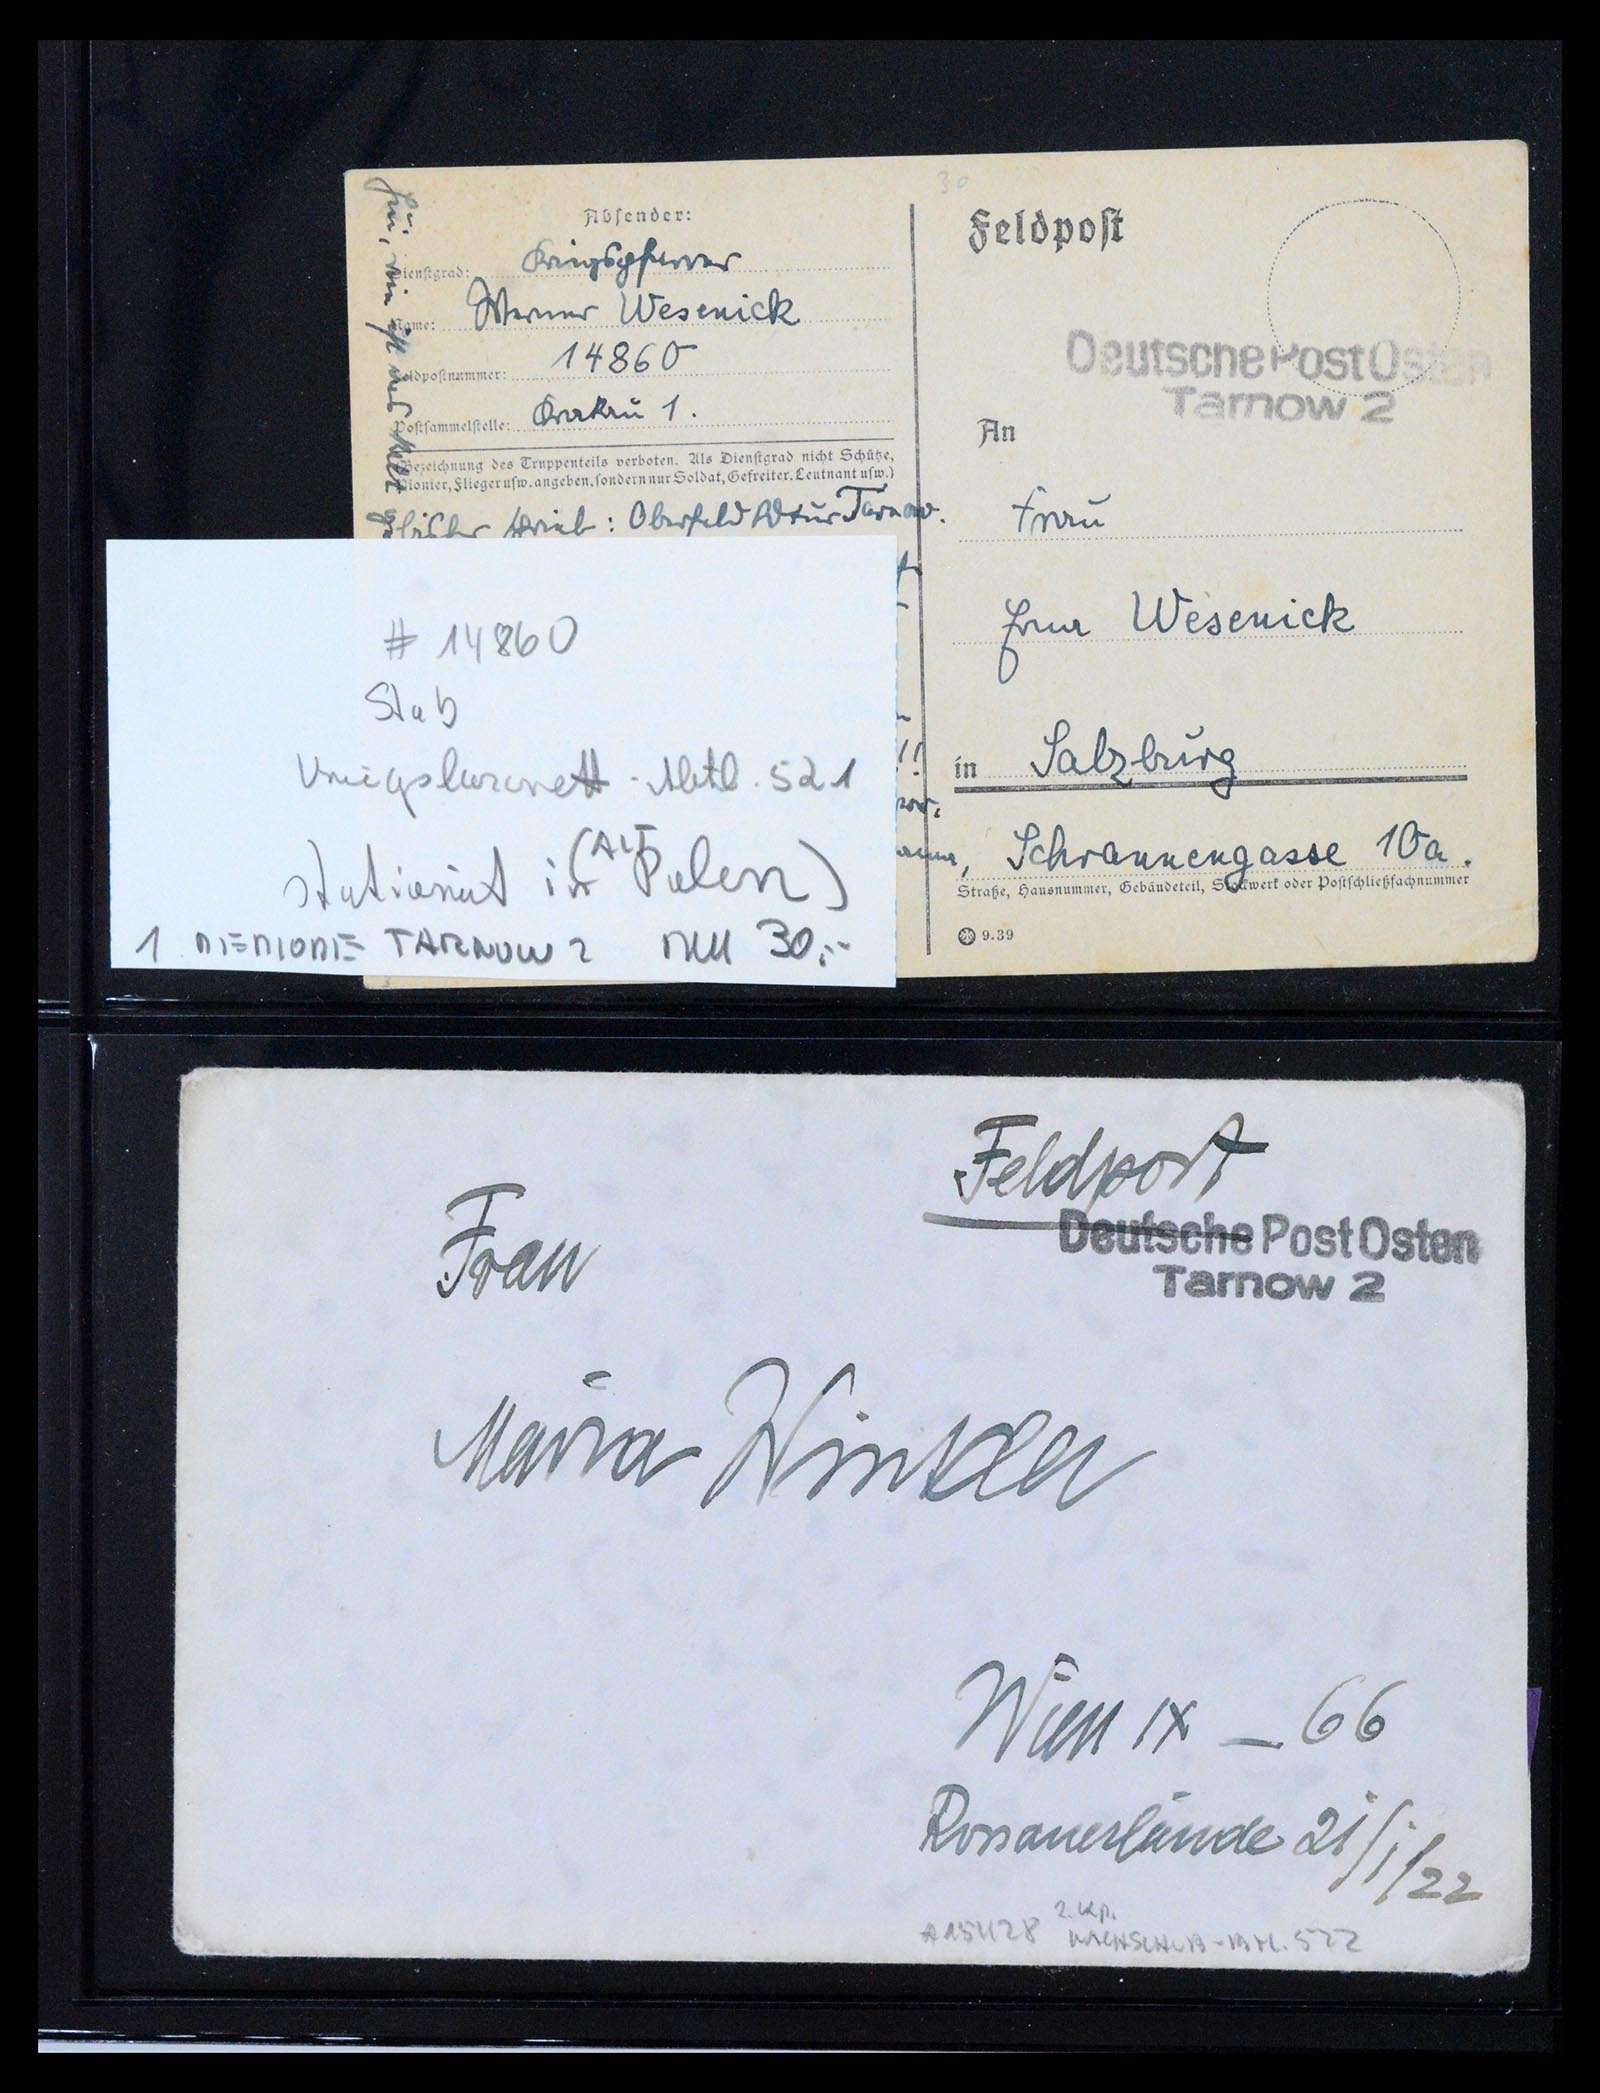 Absender:
Dienstgrad: Kriegspfarrer
Name: Werner Wesenick
Feldpostnummer: 14860
Postsammelstelle: Krakau 1.
(Bezeichnung des Truppenteils verboten. Als Dienstgrad nicht Schütze,
Pionier, Flieger usw. angeben, sondern nur Soldat, Gefreiter, Leutnant usw.)
: Oberfeld Tarnow.
30
Feldpost
Deutsche Post Osten
Tarnow 2
An
Frau
Erna Wesenick
in Salzburg
Schrannengasse 10a.
Straße, Hausnummer, Gebäudeteil, Stockwerk oder Postschließfachnummer
9.39
# 14860
Stab
Kriegslazarett-Abtl. 521
stationiert in (ALT Polen)
1 TARNOW 2 30,--
Feldpost
Deutsche Post Osten
Tarnow 2
Frau
Maria Winkler
Wien IX – 66
Rossauerlände 21/1/22
A15428 2. Kp.
NACHSCHUB-Btl. 522